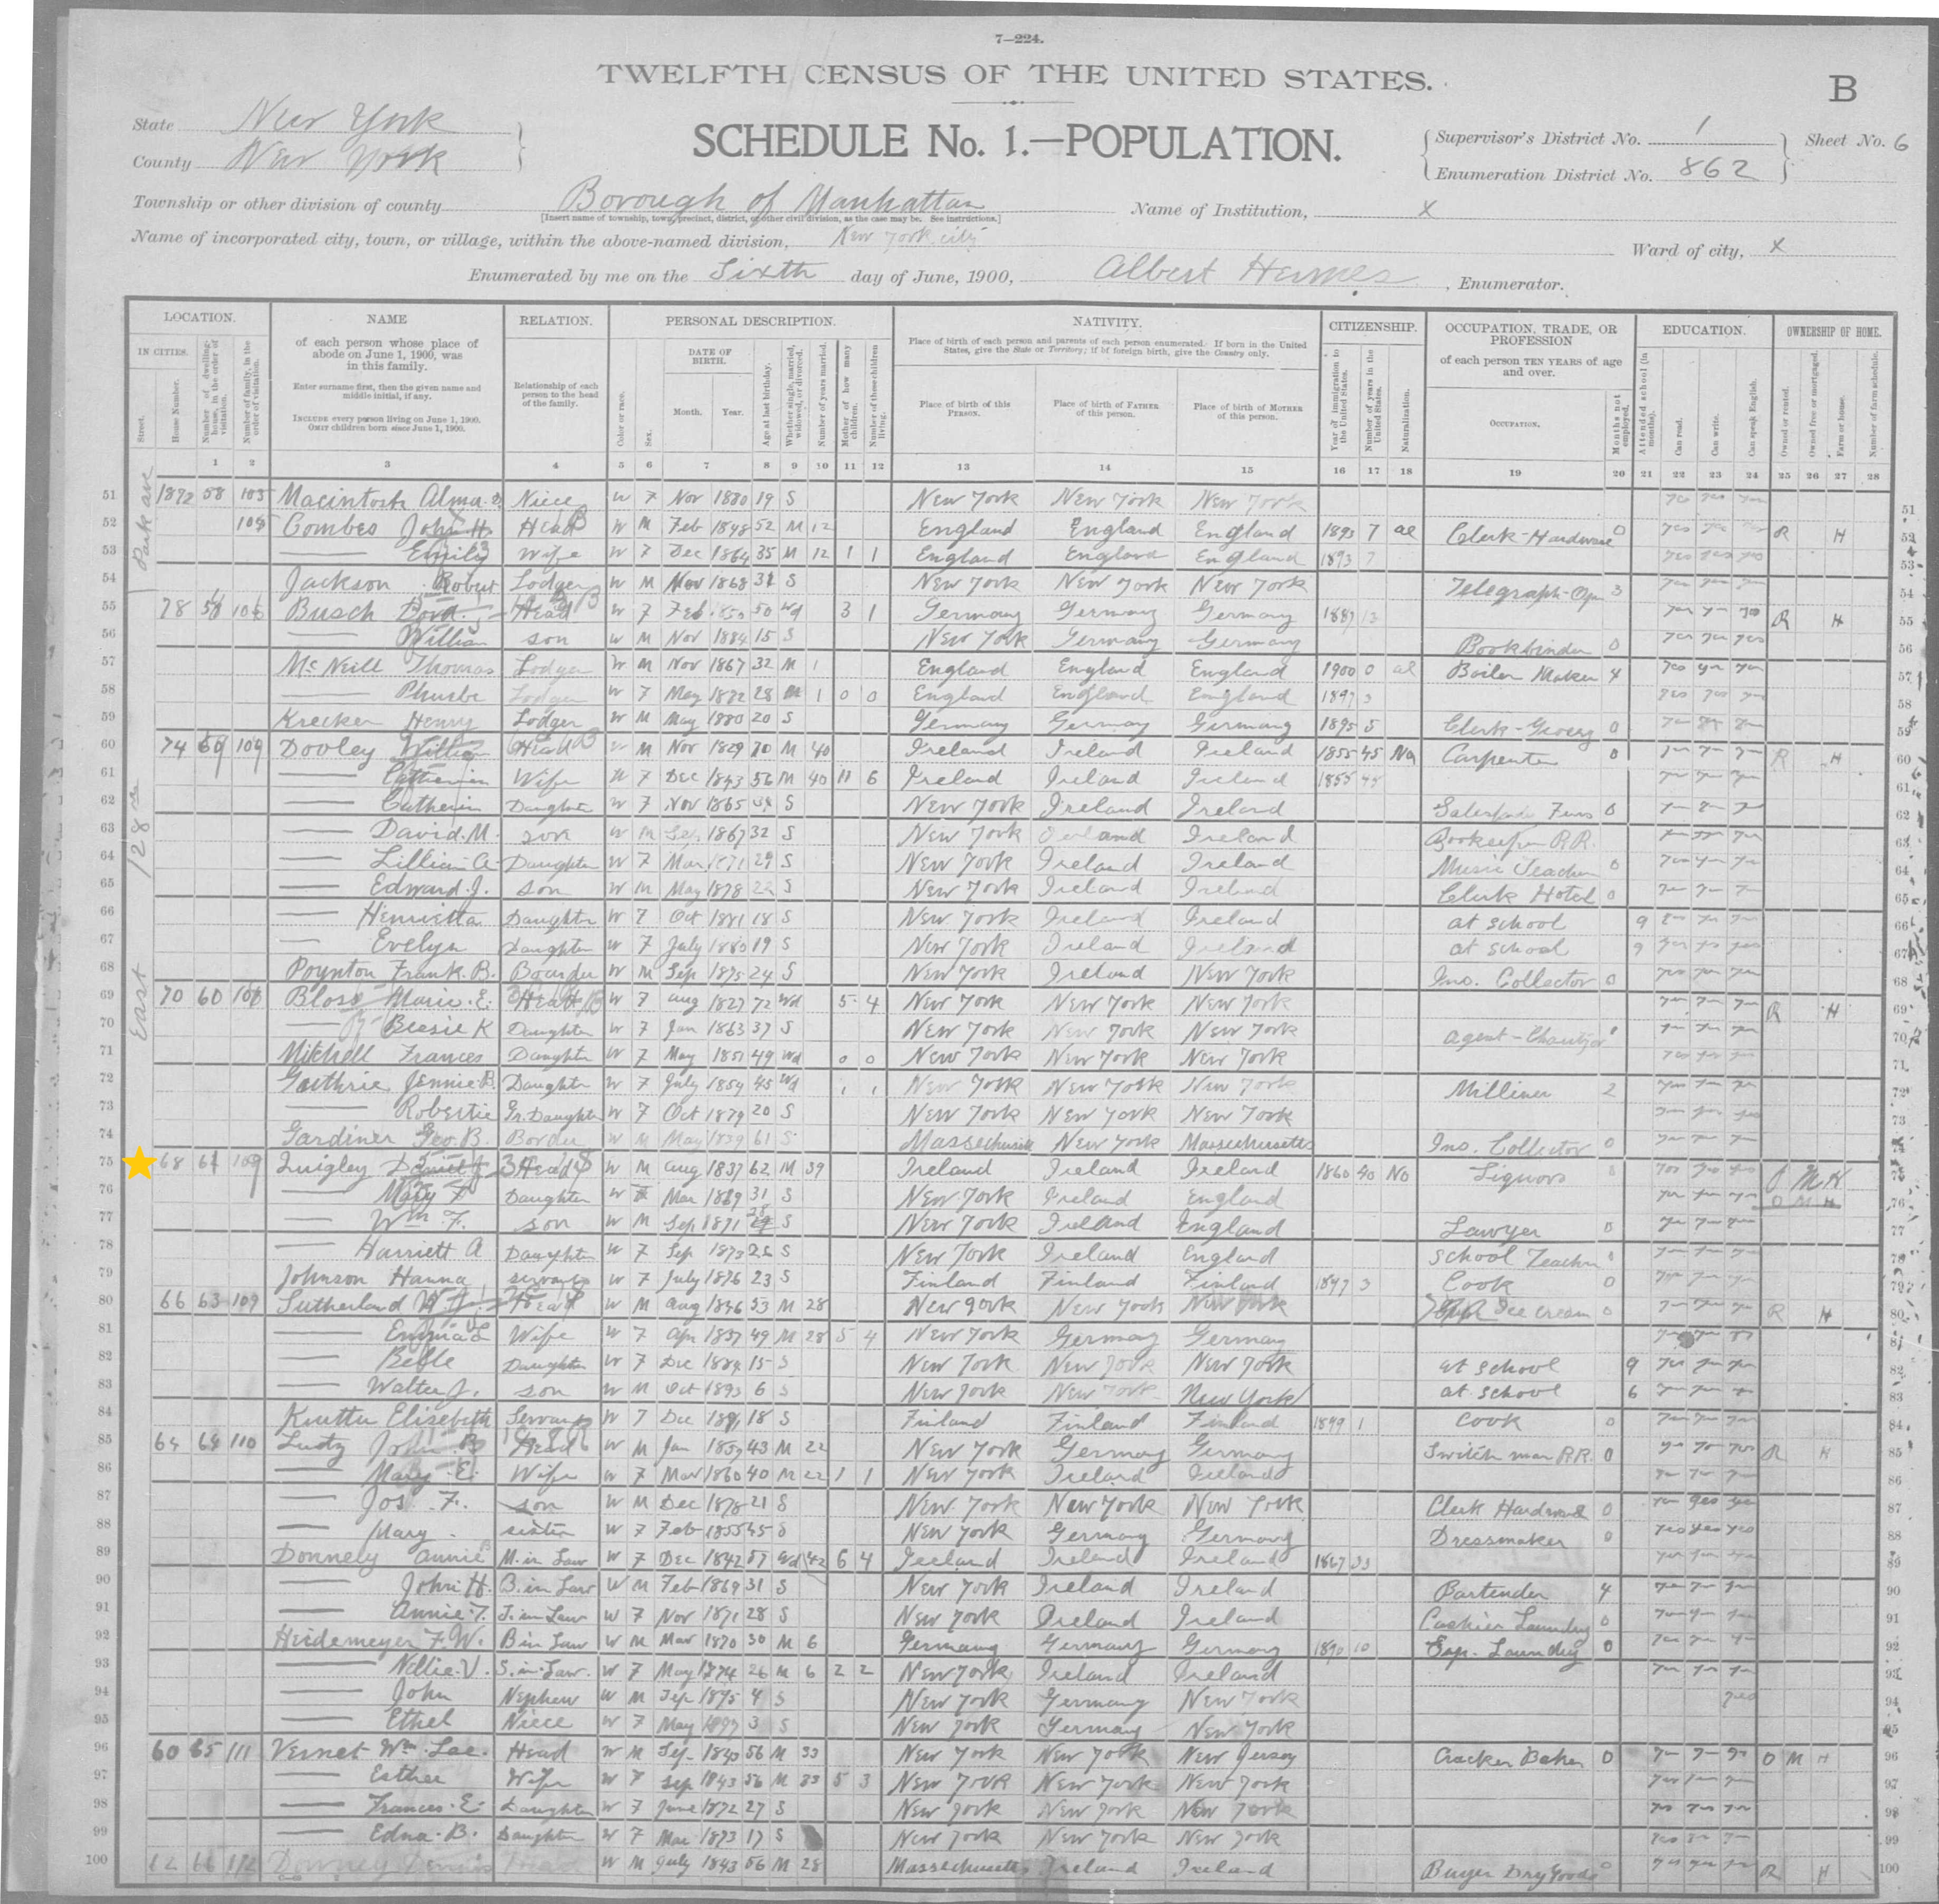 7—224.
TWELFTH CENSUS OF THE UNITED STATES.
B
State New York
County New York
SCHEDULE No. 1.—POPULATION.
Supervisor's District No. 1
Enumeration District No. 862
Sheet No. 6
Township or other division of county Borough of Manhattan
[Insert name of township, town, precinct, district, or other civil division, as the case may be. See instructions.]
Name of Institution, X
Name of incorporated city, town, or village, within the above-named division, New York City
Ward of city, X
Enumerated by me on the Sixth day of June, 1900, Albert Hermes, Enumerator.
LOCATION. NAME RELATION. PERSONAL DESCRIPTION. NATIVITY. CITIZENSHIP. OCCUPATION, TRADE, OR PROFESSION EDUCATION. OWNERSHIP OF HOME.
IN CITIES.
Street.
House Number.
Number of dwelling-house, in the order of visitation.
Number of family, in the order of visitation.
of each person whose place of abode on June 1, 1900, was in this family.
Enter surname first, then the given name and middle initial, if any.
INCLUDE every person living on June 1, 1900.
OMIT children born since June 1, 1900.
Relationship of each person to the head of the family.
Color or race.
Sex.
DATE OF BIRTH.
Month. Year.
Age at last birthday.
Whether single, married, widowed, or divorced.
Number of years married.
Mother of how many children.
Number of these children living.
Place of birth of each person and parents of each person enumerated. If born in the United States, give the State or Territory; if of foreign birth, give the Country only.
Place of birth of this PERSON.
Place of birth of FATHER of this person.
Place of birth of MOTHER of this person.
Year of immigration to the United States.
Number of years in the United States.
Naturalization.
of each person TEN YEARS of age and over.
OCCUPATION.
Months not employed.
Attended school (in months).
Can read.
Can write.
Can speak English.
Owned or rented.
Owned free or mortgaged.
Farm or house.
Number of farm schedule.
1 2 3 4 5 6 7 8 9 10 11 12 13 14 15 16 17 18 19 20 21 22 23 24 25 26 27 28
Park ave
East 128
51 1892 58 105 Macintosh Alma Niece W F Nov 1880 19 S New York New York New York 51
52 Combes John H Head W M Feb 1848 52 M 12 England England England 1893 7 al Clerk-Hardware 0 R H 52
53 Emily Wife W F Dec 1864 35 M 12 1 1 England England England 1893 7 53
54 Jackson Robert Lodger W M Nov 1868 31 S New York New York New York Telegraph-Opr 3 54
55 78 Busch Head W F Feb 50 Wd 3 1 Germany Germany Germany 1887 13 R H 55
56 William son W M Nov 1884 15 S New York Germany Germany Bookbinder 0 56
57 McNeill Thomas Lodger W M Nov 1867 32 M 1 England England England 1900 0 al Boiler Maker 4 57
58 Phoebe Lodger W F May 1872 28 M 1 0 0 England England England 1897 3 58
59 Krecker Henry Lodger W M May 1880 20 S Germany Germany Germany 1895 5 Clerk-Grocery 0 59
60 74 Dooley William Head W M Nov 1829 70 M 40 Ireland Ireland Ireland 1855 45 Na Carpenter 0 R H 60
61 Catherine Wife W F Dec 1843 56 M 40 11 6 Ireland Ireland Ireland 1855 45 61
62 Catherin Daughter W F Nov 1865 34 S New York Ireland Ireland 62
63 David M. son W M Sep 1867 32 S New York Ireland Ireland Bookeeper R.R. 63
64 Lillian A Daughter W F Mar 1871 29 S New York Ireland Ireland Music Teacher 0 64
65 Edward J. son W M May 1878 22 S New York Ireland Ireland Clerk Hotel 0 65
66 Henrietta Daughter W F Oct 1881 18 S New York Ireland Ireland at school 9 66
67 Evelyn Daughter W F July 1880 19 S New York Ireland Ireland at school 9 67
68 Poynton Frank B. Boarder W M Sep 1875 24 S New York Ireland New York Ins. Collector 0 68
69 70 60 108 Bloss Marie E. Head W F Aug 1827 72 Wd 5 4 New York New York New York R H 69
70 Bessie K Daughter W F Jan 1863 37 S New York New York New York 70
71 Mitchell Frances Daughter W F May 1851 49 Wd 0 0 New York New York New York 71
72 Guthrie Jennie B. Daughter W F July 1854 45 Wd 1 1 New York New York New York Milliner 2 72
73 Robertie Gr. Daughter W F Oct 1879 20 S New York New York New York 73
74 Gardiner Geo. B. Border W M May 1839 61 S Massachusetts New York Massachusetts Ins. Collector 0 74
75 68 61 109 Quigley Daniel J. Head W M Aug 1837 62 M 39 Ireland Ireland Ireland 1860 40 Na Liquors O M H 75
76 Mary F Daughter W F Mar 1869 31 S New York Ireland England O M H 76
77 Wm F. son W M Sep 1871 28 S New York Ireland England Lawyer 0 77
78 Harriett A Daughter W F Sep 1873 26 S New York Ireland England School Teacher 78
79 Johnson Hanna servant W F July 1876 23 S Finland Finland Finland 1897 3 Cook 0 79
80 66 63 109 Sutherland Head W M Aug 1846 53 M 28 New York New York New York Ice Cream 0 R H 80
81 Emma L Wife W F Apr 49 M 28 5 4 New York Germany Germany 81
82 Belle Daughter W F Dec 1884 15 S New York New York New York at school 9 82
83 Walter J. son W M Oct 1893 6 S New York New York New York at school 6 83
84 Elizabeth Servant W F Dec 18 S Finland Finland Finland 1899 1 Cook 0 84
85 64 64 110 Lutz John B Head W M Jan 43 M 22 New York Germany Germany Switchman R.R. 0 R H 85
86 Mary E. Wife W F Mar 1860 40 M 22 1 1 New York Ireland Ireland 86
87 Jos. F. son W M Dec 1878 21 S New York New York New York Clerk Hardware 0 87
88 Mary sister W F Feb 1855 45 S New York Germany Germany Dressmaker 0 yes yes yes 88
89 Donnely Annie M. in Law W F Dec 1842 57 Wd 42 6 4 Ireland Ireland Ireland 1867 33 89
90 John H. B. in Law W M Feb 1869 31 S New York Ireland Ireland Bartender 4 90
91 Annie T. S. in Law W F Nov 1871 28 S New York Ireland Ireland Cashier Laundry 0 91
92 Heidemeyer F. W. B in Law W M Mar 1870 30 M 6 Germany Germany Germany 1890 10 Laundry 0 92
93 Nellie V. S. in Law W F May 1874 26 M 6 2 2 New York Ireland Ireland 93
94 John Nephew W M Sep 1895 4 S New York Germany New York 94
95 Ethel Niece W F May 1897 3 S New York Germany New York 95
96 60 65 111 Vernet Wm Lee Head W M Sep 56 M 33 New York New York New Jersey Cracker Baker 0 O M H 96
97 Esther Wife W F Sep 1843 56 M 33 5 3 New York New York New York 97
98 Frances E. Daughter W F June 1872 27 S New York New York New York 98
99 Edna B. Daughter W F Mar 17 S New York New York New York 99
100 62 66 112 Downey Dennis Head W M July 1843 56 M 28 Massachusetts Ireland Ireland Buyer Dry Goods R H 100